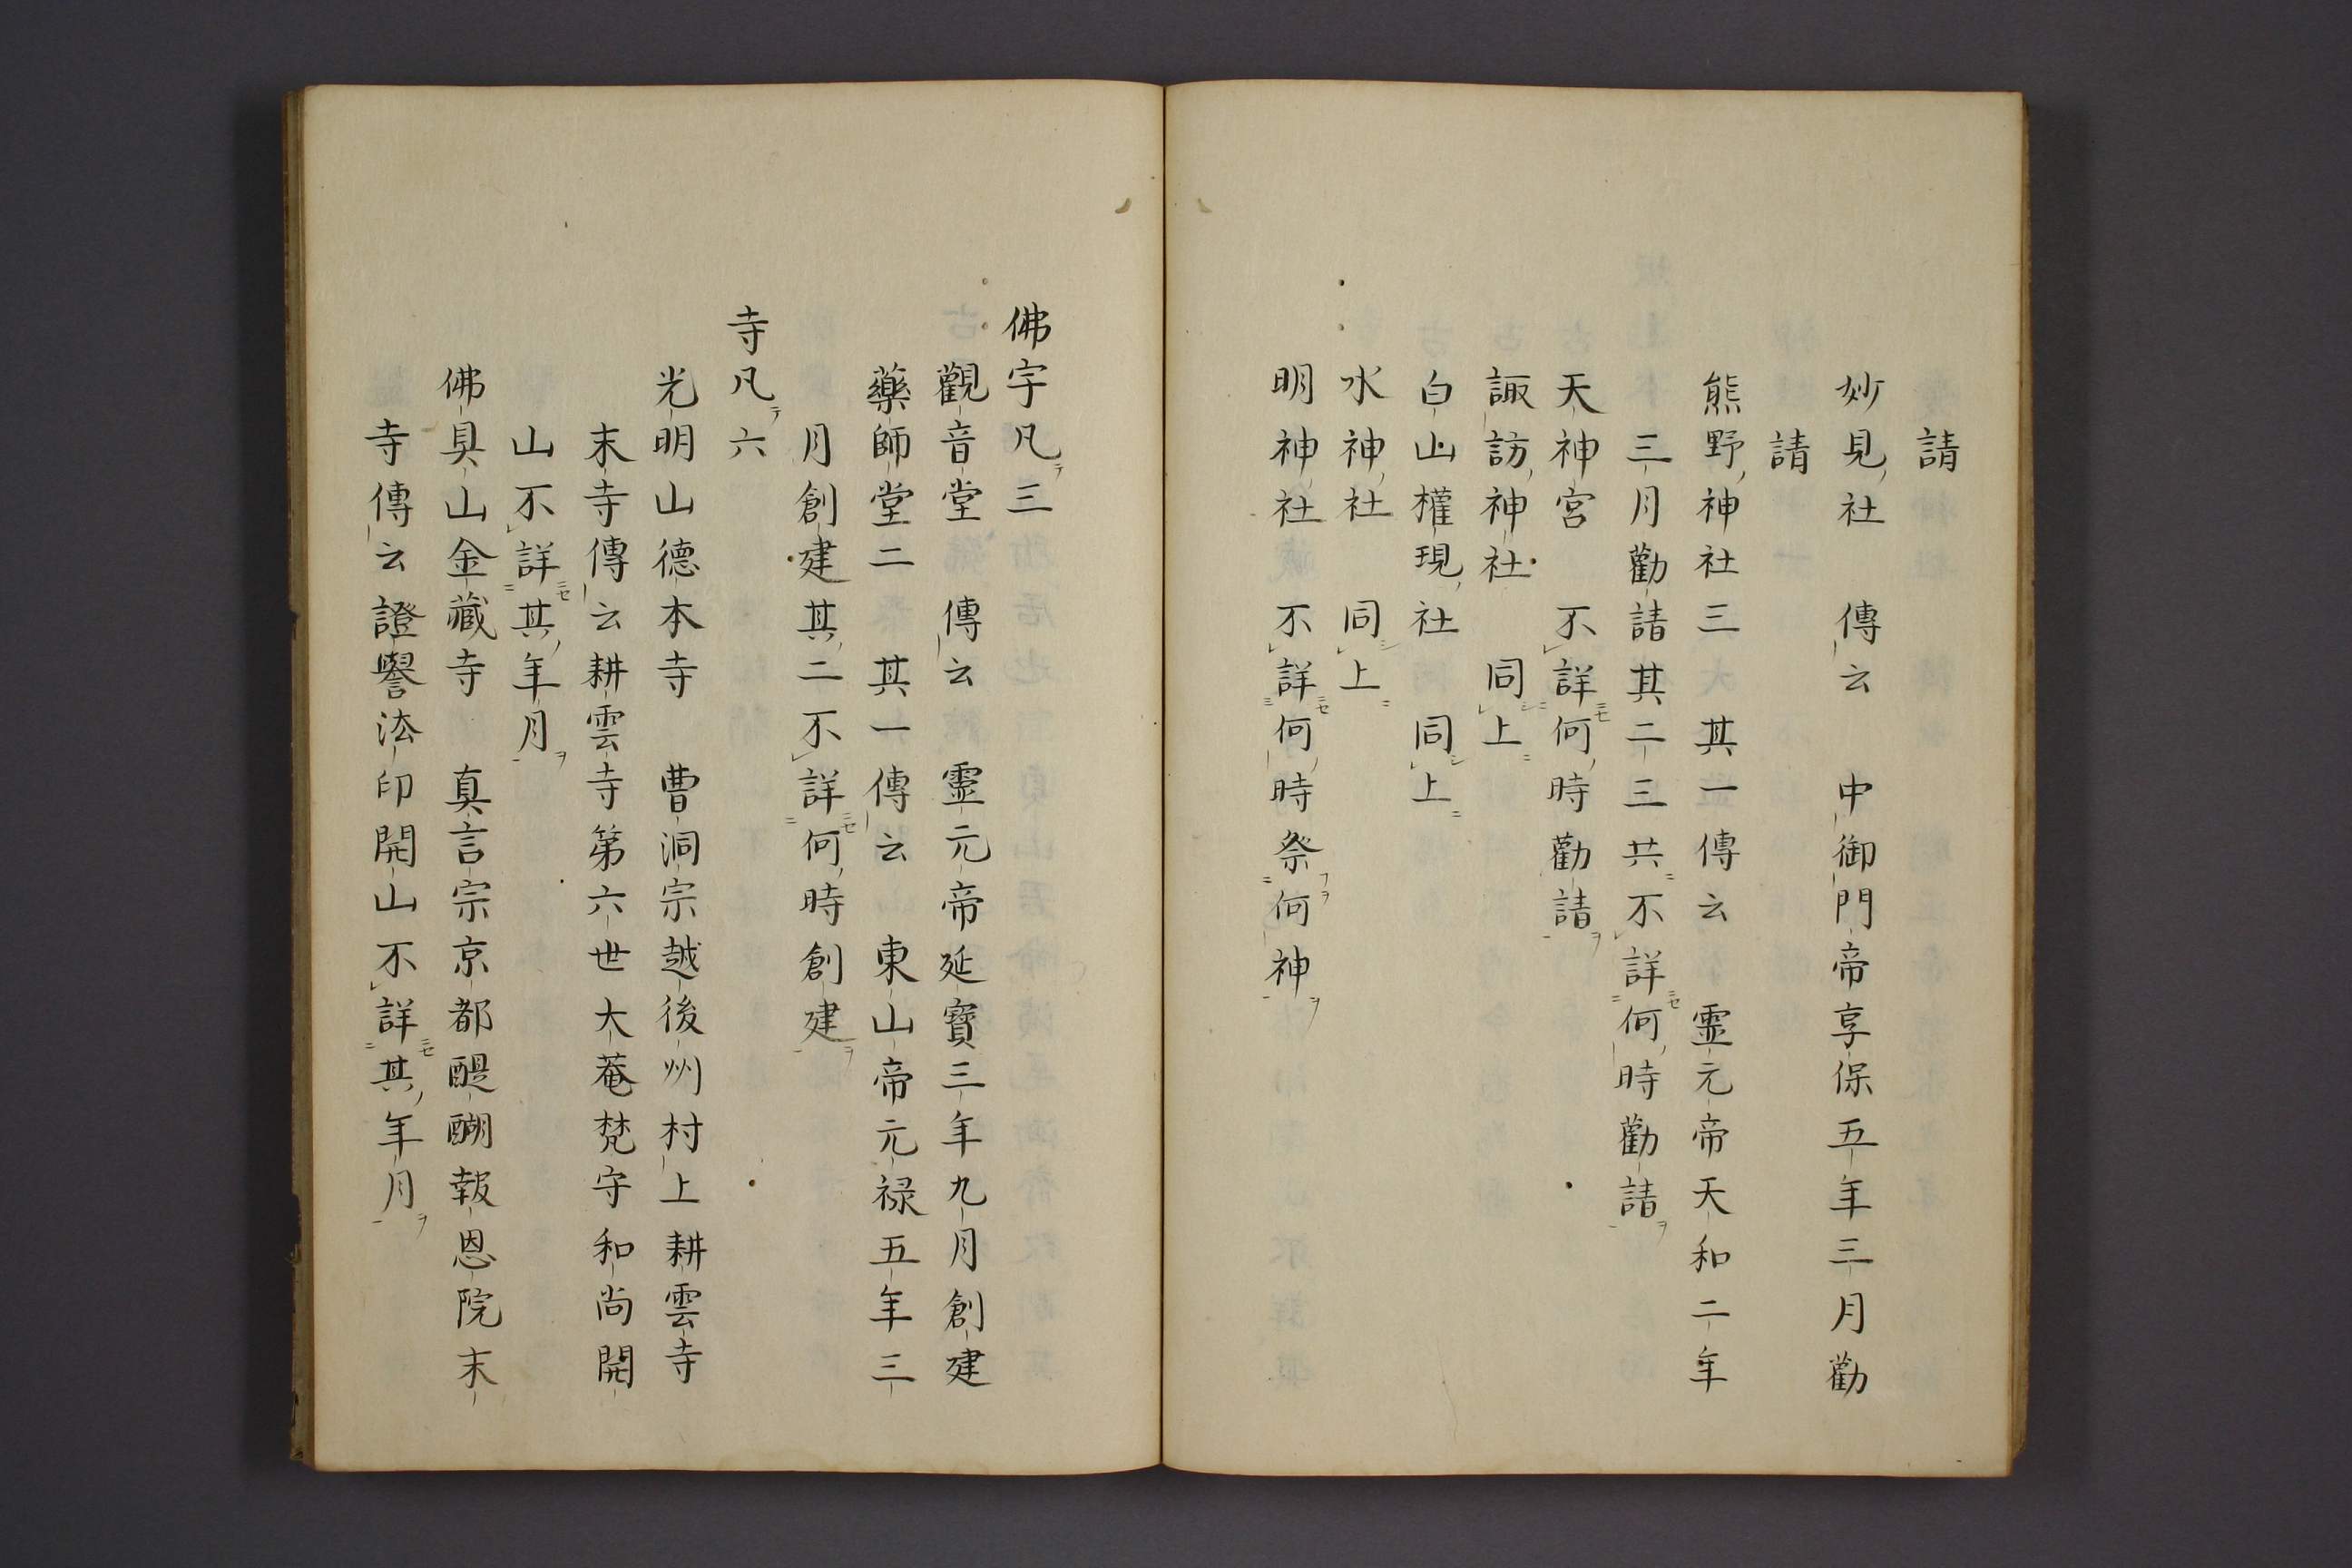 請
妙見社　傳云　中御門帝享保五年三月勸
請
熊野神社三　其一傳云　靈元帝天和二年
三月勸請其二三共不詳何時勸請
天神宮　不詳何時勸請
諏訪神社　同上
白山權現社　同上
水神社　同上
明神社　不詳何時祭何神
佛宇凡三
觀音堂　傳云　靈元帝延寶三年九月創建
藥師堂二　其一傳云　東山帝元禄五年三
月創建其二不詳何時創建
寺凡六
光明山德本寺　曹洞宗越後州村上耕雲寺
末寺傳云耕雲寺第六世大菴梵守和尚開
山不詳其年月
佛具山金藏寺　真言宗京都醍醐報恩院末
寺傳云證譽法印開山不詳其年月